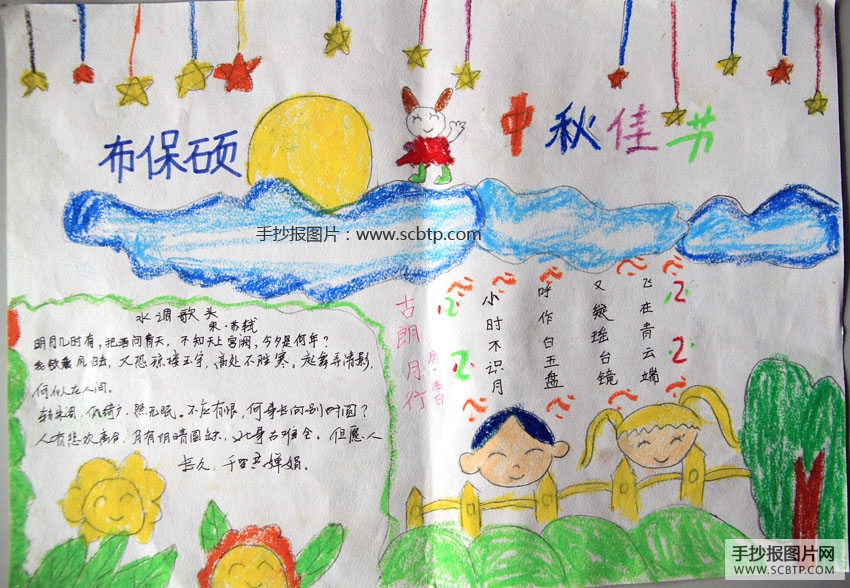 布保硕
中秋佳节
手抄报图片：www.scbtp.com
水调歌头
宋·苏轼
明月几时有，把酒问青天，不知天上宫阙，今夕是何年？
我欲乘风归去，又恐琼楼玉宇，高处不胜寒。起舞弄清影，
何似在人间。
转朱阁，低绮户，照无眠。不应有恨，何事长向别时圆？
人有悲欢离合，月有阴晴圆缺，此事古难全。但愿人
长久，千里共婵娟。
古朗月行
李白
小时不识月
呼作白玉盘
又疑瑶台镜
飞在青云端
手抄报图片网
WWW.SCBTP.COM